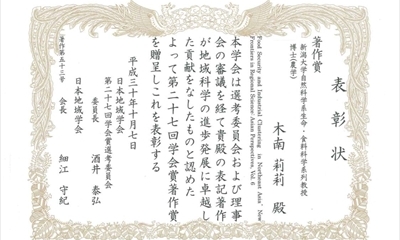 表彰状
著作賞
新潟大学自然科学系生命・食料科学系列教授
博士(農学)
木南 莉莉 殿
"Food Security and Industrial Clustering in Northeast Asia" New
Frontiers in Regional Science: Asian Perspectives, Vol. 6
本学会は選考委員会および理事
会の審議を経て貴殿の表記著作
が地域科学の進歩発展に卓越し
た貢献をなしたものと認めた
よって第二十七回学会賞著作賞
を贈呈しこれを表彰する
平成三十年十月七日
日本地域学会
第二十七回学会賞選考委員会
委員長 酒井 泰弘
日本地域学会
会長 細江 守紀
著作第五十三号